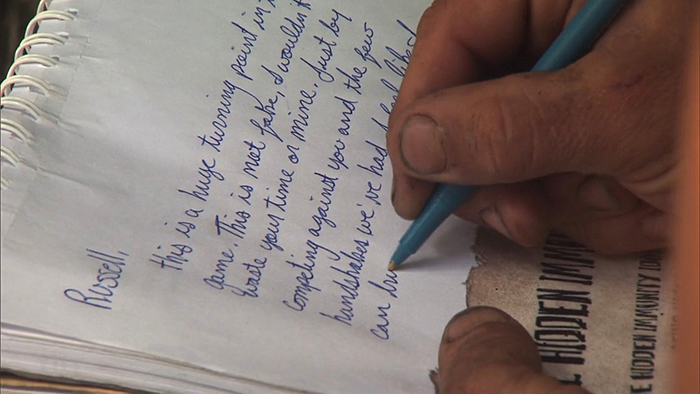 Russell,
This is a huge turning point in
game. This is not fake, I wouldn't
waste your time or mine. Just by
competing against you and the few
handshakes we've had I feel liked
can
HIDDEN IMM
E HIDDEN IMMUNITY ID